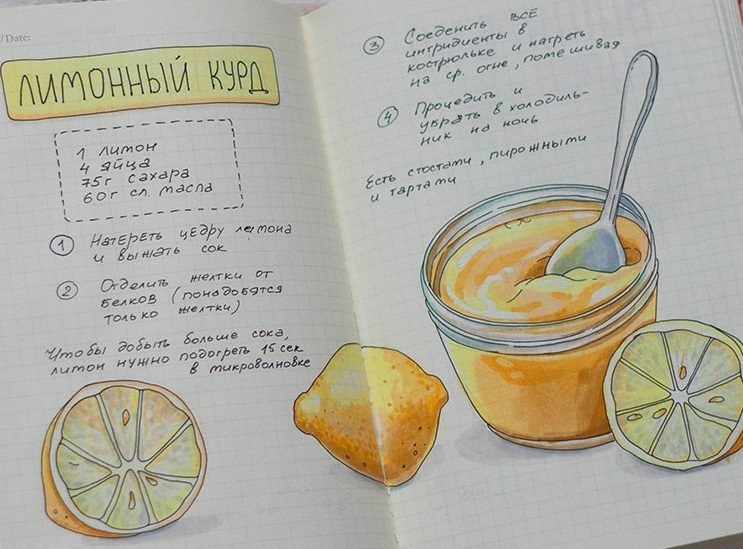 /Date:
ЛИМОННЫЙ КУРД
1 лимон
4 яйца
75г сахара
60г сл. масла
1 Натереть цедру лемона
и выжать сок
2 Отделить желтки от
белков (понадобятся
только желтки)
Чтобы добыть больше сока,
лимон нужно подогреть 15 сек
в микроволновке
3 Соеденить всё
ингридиенты в
кострюльке и нагреть
на ср. огне, помешивая
4 Процедить и
убрать в холодиль-
ник на ночь
Есть стостами, пирожными
и тартами